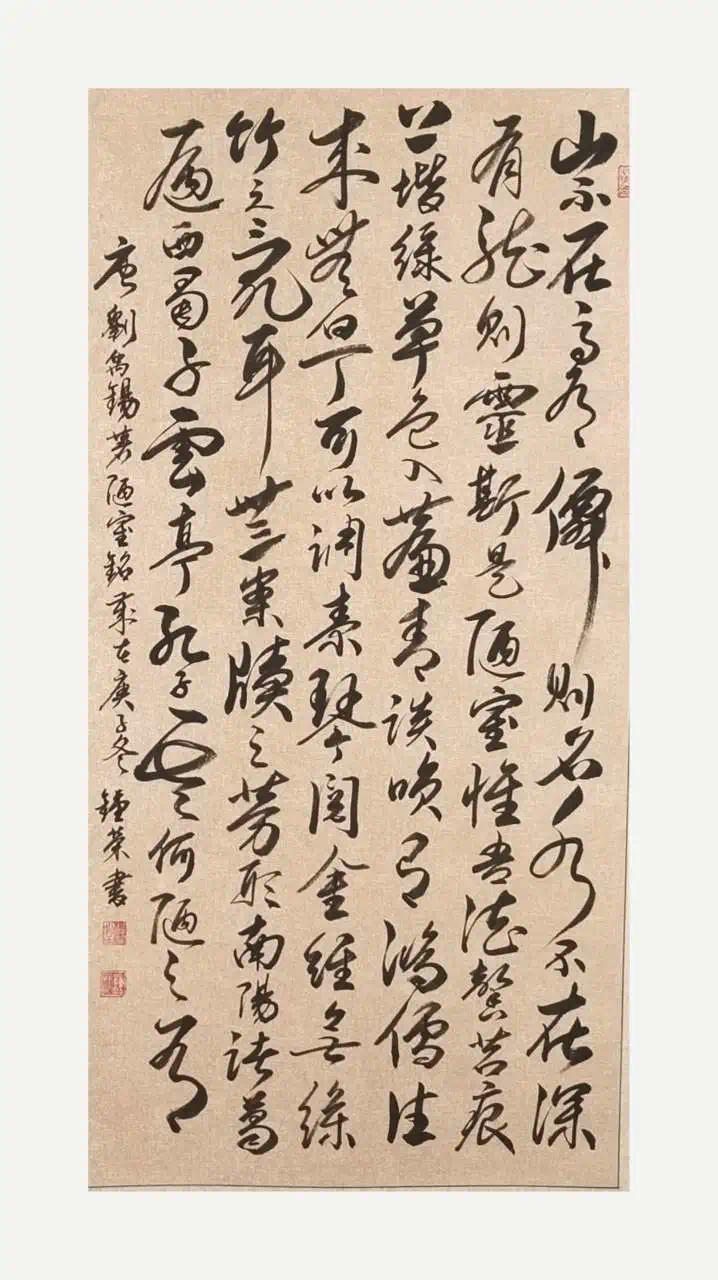 山不在高有僊則名水不在深
有龍則靈斯是陋室惟吾德馨苔痕
上堦綠草色入簾青談咲有鴻儒往
來無白丁可以調素琴閱金經無絲
竹之亂耳無案牘之勞形南陽諸葛
廬西蜀子雲亭孔子云何陋之有
唐劉禹錫著陋室銘歲在庚子冬鍾榮書